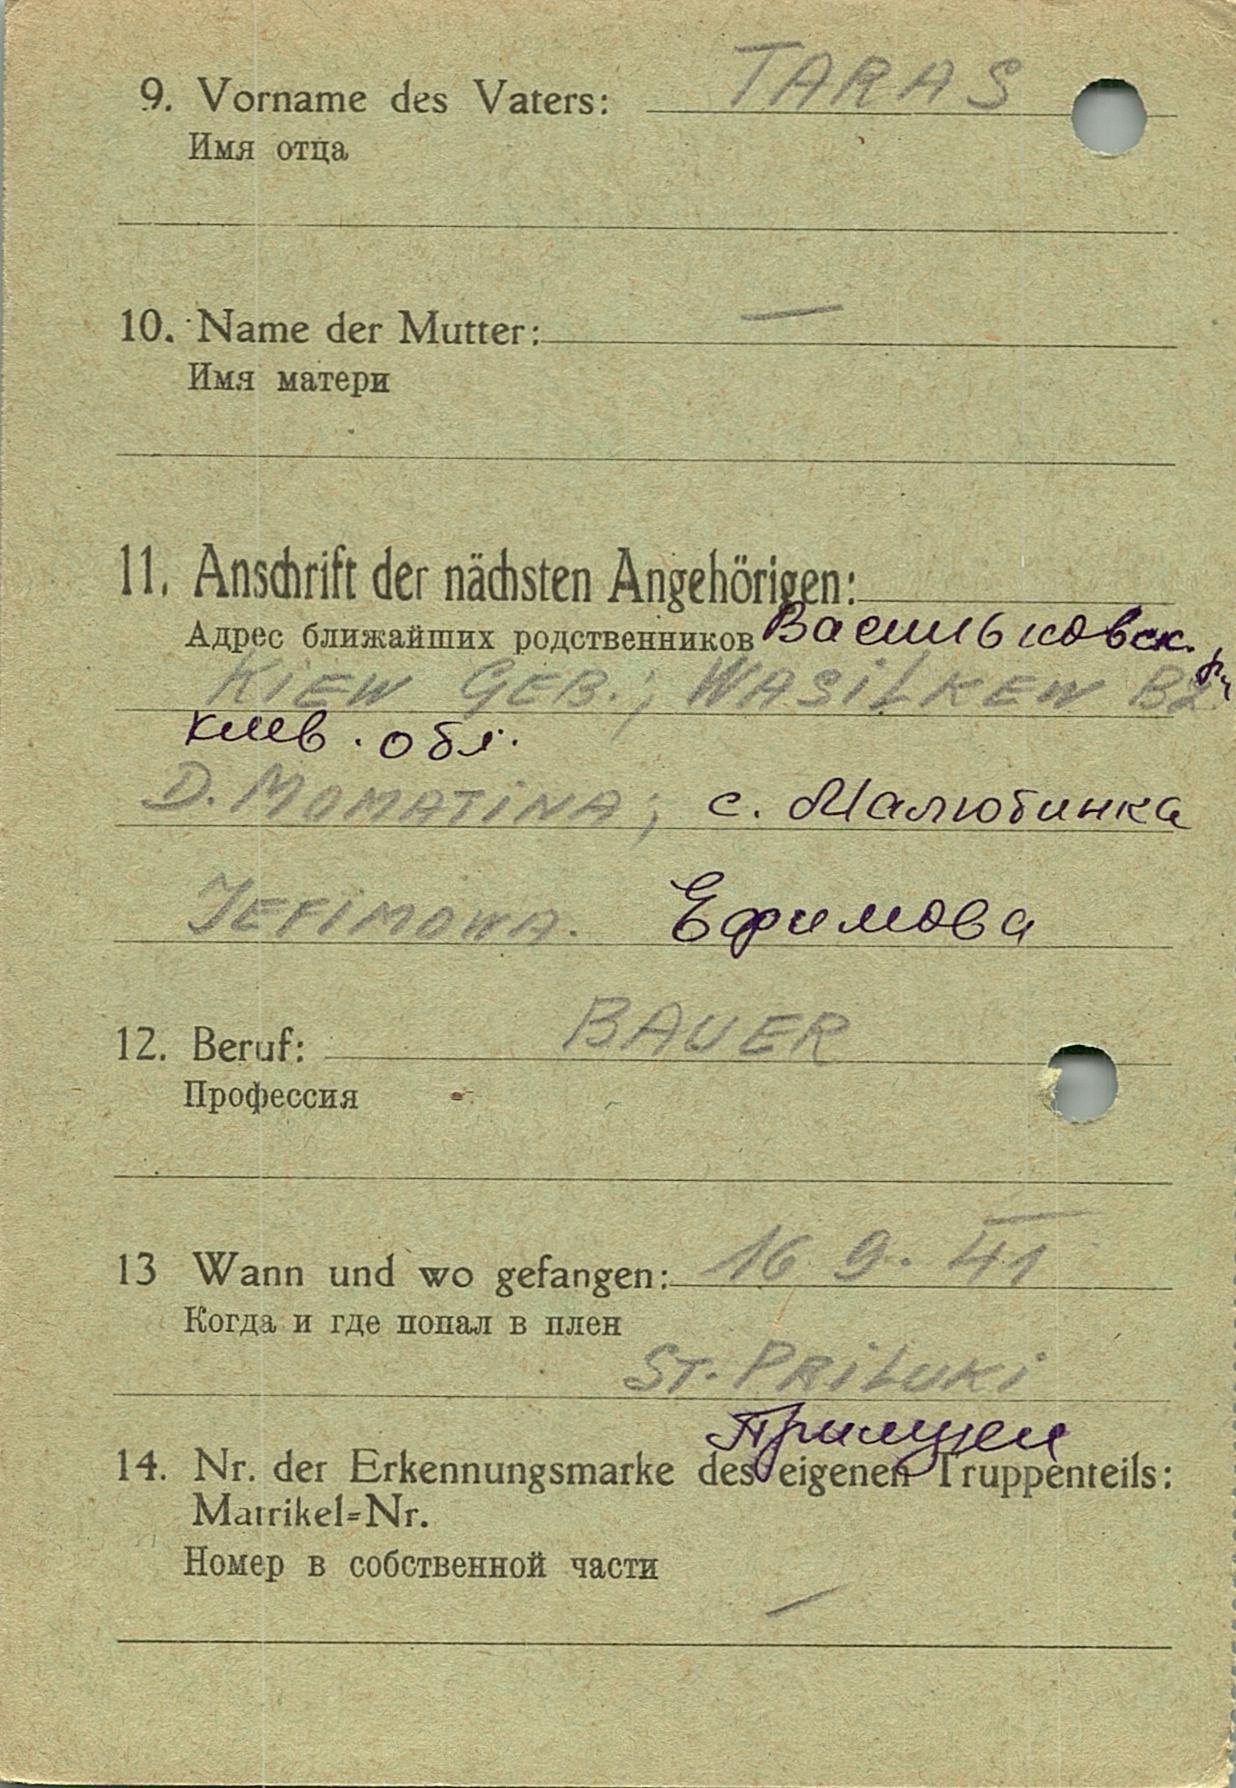 9. Vorname des Vaters: TARAS
Имя отца
10. Name der Mutter: —
Имя матери
11. Anschrift der nächsten Angehörigen:
Адрес ближайших родственников Васильковск.
KIEW GEB.; WASILKEW BZ. р-н
Киев. обл.
D. MOMATINA; с. Малютинка
JEFIMOWA. Ефимова
12. Beruf: BAUER
Профессия
13 Wann und wo gefangen: 16 9. 41
Когда и где попал в плен
ST. PRILUKI
Прилуки
14. Nr. der Erkennungsmarke des eigenen Truppenteils:
Matrikel=Nr.
Номер в собственной части
—